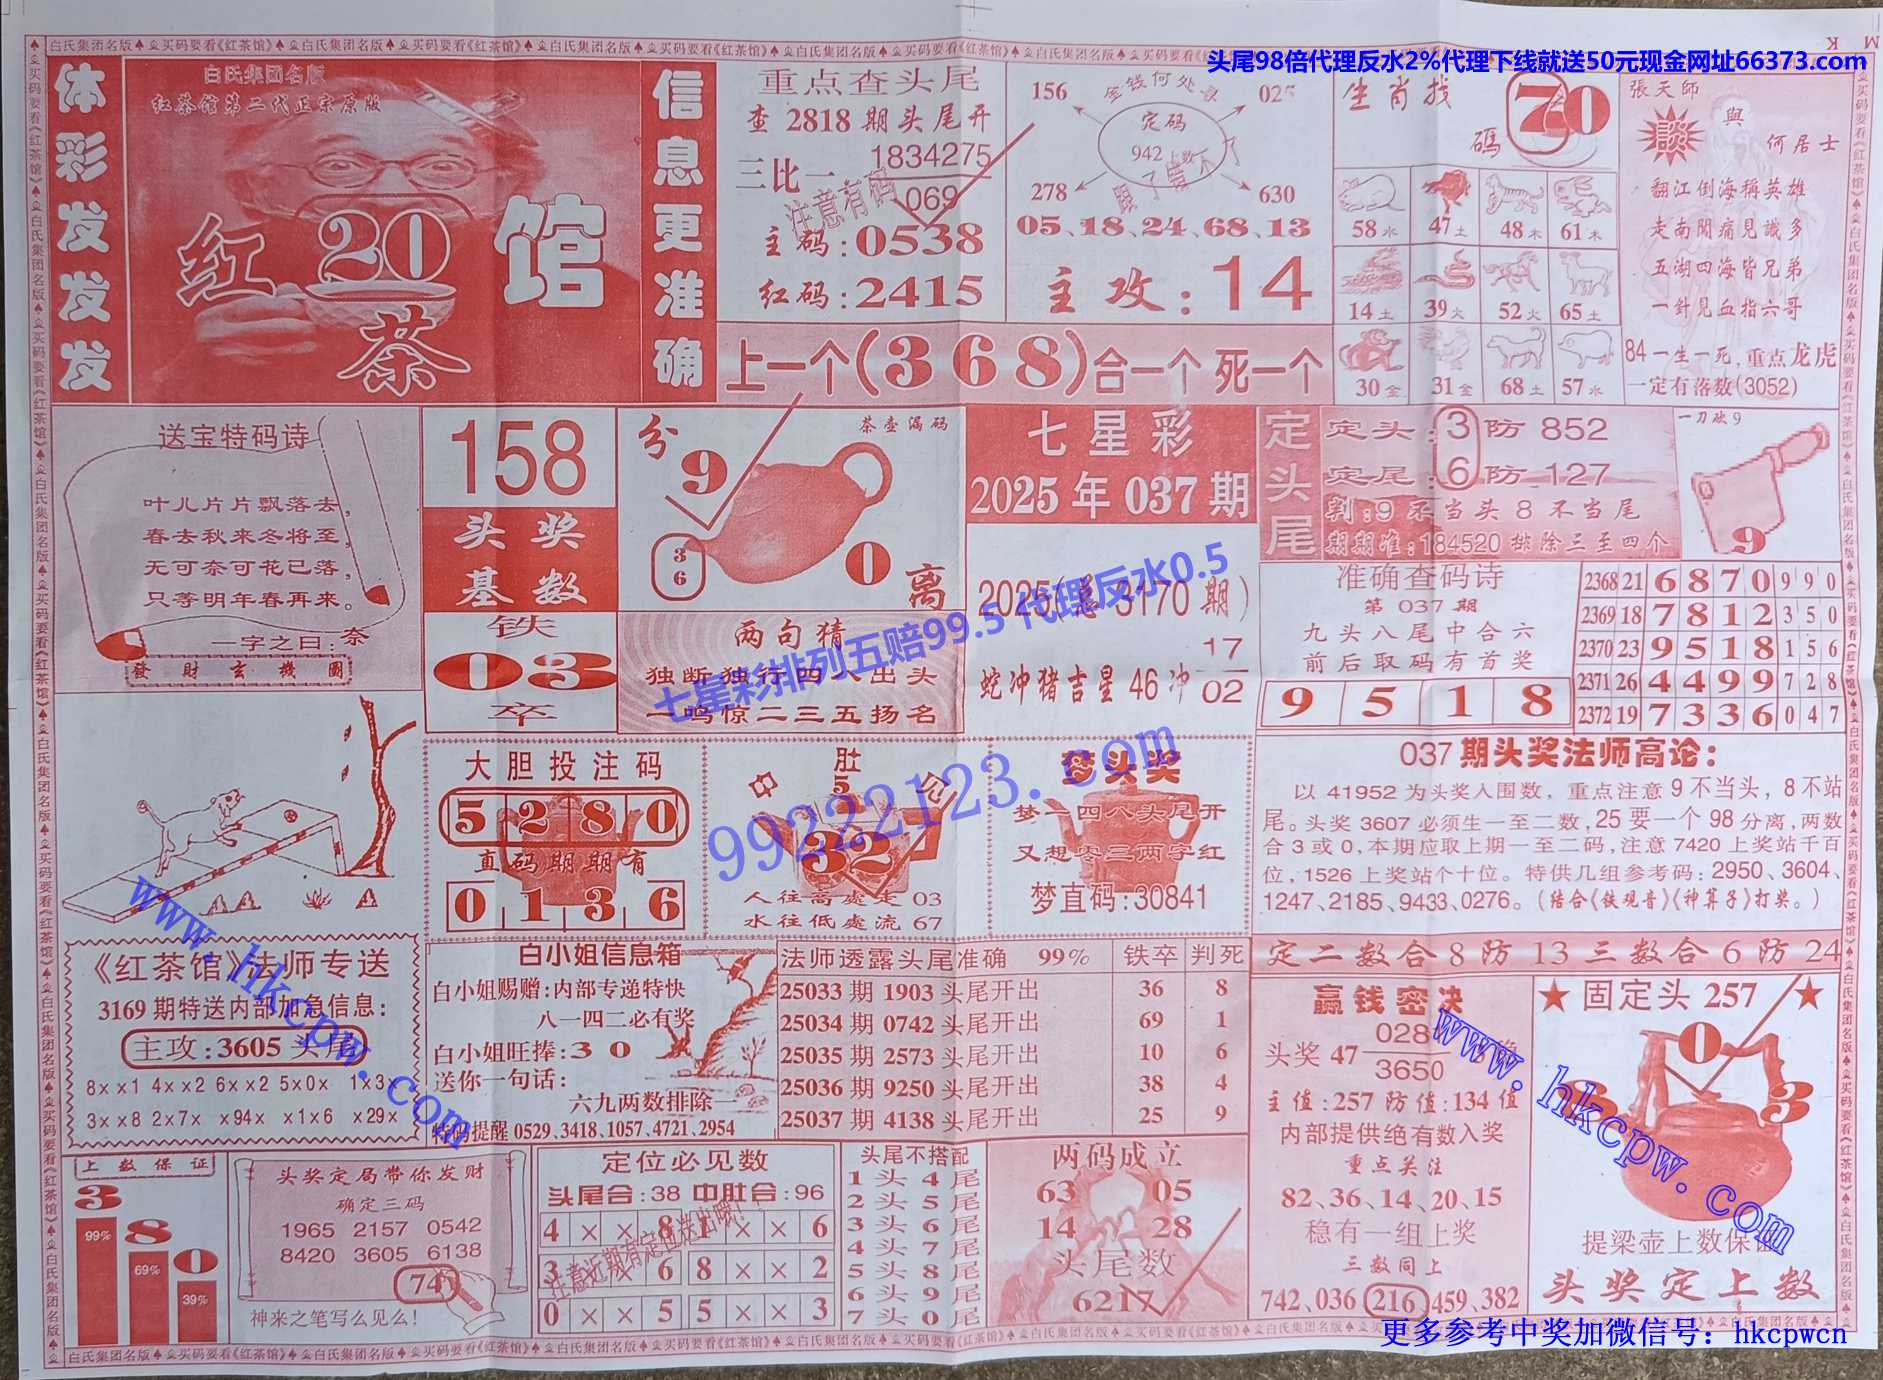 头尾98倍代理反水2%代理下线就送50元现金网址66373.com
白氏集团名版♠买码要看《红茶馆》
体彩发发发
白氏集团名版
红茶馆第二代正宗原版
红茶馆
20
信息更准确
重点查头尾
查 2818 期头尾开
三比一
1834275
069
注意有码
主码:0538
红码:2415
156
金钱何处寻
025
定码
942上数
278
跟了骂不了
630
05、18、24、68、13
主攻:14
上一个(368)合一个 死一个
生肖找码
70
58水 47土 48木 61木
14土 39火 52火 65土
30金 31金 68土 57水
張天師
談
與
何居士
翻江倒海稱英雄
走南闖痛見識多
五湖四海皆兄弟
一針見血指六哥
84一生一死,重点龙虎
一定有落数(3052)
送宝特码诗
叶儿片片飘落去,
春去秋来冬将至,
无可奈可花已落,
只等明年春再来。
一字之曰:奈
發財玄機圖
158
头奖
基数
铁
03
卒
茶壶漏码
分
9
36
0
离
两句猜
独断独行四人出头
一鸣惊二三五扬名
七星彩
2025年037期
2025(总3170期)
蛇冲猪吉星46冲
17
02
七星彩排列五赔99.5 代理反水0.5
99222123.com
定头尾
定头:3防852
定尾:6防127
判:9不当头8不当尾
期期准:184520排除三至四个
一刀砍9
9
准确查码诗
第037期
九头八尾中合六
前后取码有首奖
9 5 1 8
2368 21 6870 990
2369 18 7812 350
2370 23 9518 156
2371 26 4499 728
2372 19 7336 047
大胆投注码
5 2 8 0
直码期期有
0 1 3 6
肚
5
见
32
人往高處走 03
水往低處流 67
梦头奖
梦一四八头尾开
又想零三两字红
梦直码:30841
037期头奖法师高论:
以41952为头奖入围数,重点注意9不当头,8不站
尾。头奖3607必须生一至二数,25要一个98分离,两数
合3或0,本期应取上期一至二码,注意7420上奖站千百
位,1526上奖站个十位。特供几组参考码:2950、3604、
1247、2185、9433、0276。(结合《铁观音》《神算子》打奖。)
定二数合8防13三数合6防24
www.hkcpw.com
《红茶馆》法师专送
3169期特送内部加急信息:
主攻:3605头尾
8xx1 4xx2 6xx2 5x0x 1x3x
3xx8 2x7x x94x x1x6 x29x
白小姐信息箱
白小姐赐赠:内部专递特快
八一四二必有奖
白小姐旺捧:30
送你一句话:
六九两数排除一
特码提醒 0529、3418、1057、4721、2954
法师透露头尾准确 99% 铁卒 判死
25033期 1903 头尾开出 36 8
25034期 0742 头尾开出 69 1
25035期 2573 头尾开出 10 6
25036期 9250 头尾开出 38 4
25037期 4138 头尾开出 25 9
赢钱密决
头奖47
028
3650
主值:257防值:134值
内部提供绝有数入奖
重点关注
82、36、14、20、15
稳有一组上奖
三数同上
742、036 216 459、382
★固定头257★
0
3
www.hkcpw.com
提梁壶上数保证
头奖定上数
上数保证
3 8 0
99% 69% 39%
头奖定局带你发财
确定三码
1965 2157 0542
8420 3605 6138
74
神来之笔写么见么!
定位必见数
头尾合:38 中肚合:96
4 × × 8 1 × × 6
3 × × 6 8 × × 2
0 × × 5 5 × × 3
注意近期有定位送出哦!
头尾不搭配
1头4尾
2头5尾
3头6尾
4头7尾
5头8尾
6头9尾
7头0尾
两码成立
63 05
14 28
头尾数
6217
更多参考中奖加微信号:hkcpwcn